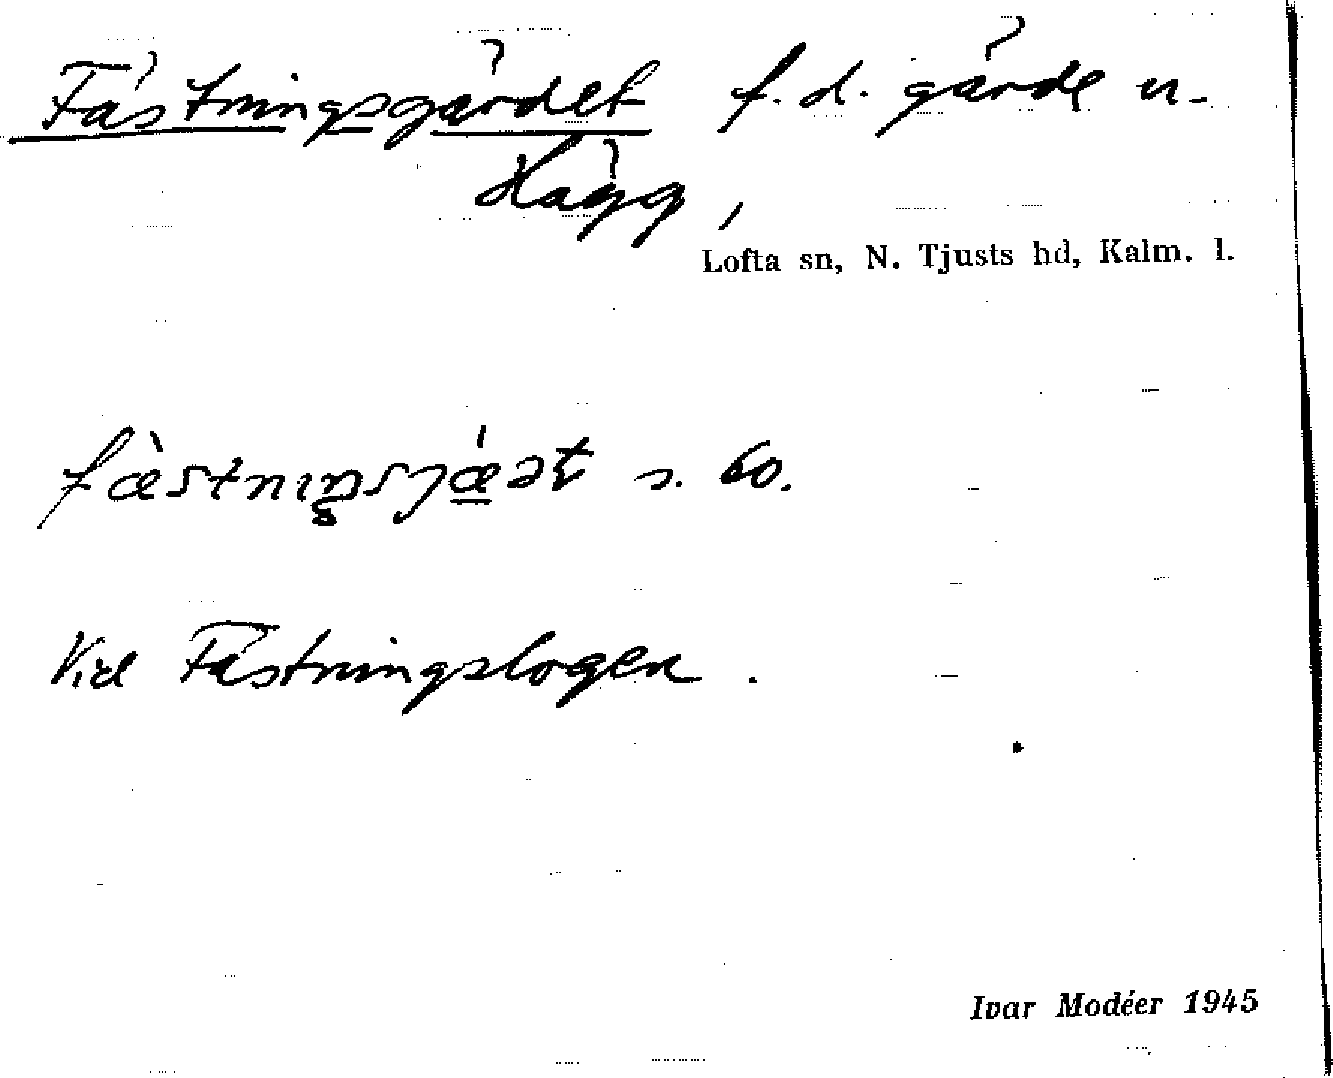 Fästningsgärdet f.d. gärde u.
Hägg,
Lofta sn, N. Tjusts hd, Kalm. l.
s. 60.
Vid Fästningslogen.
Ivar Modéer 1945